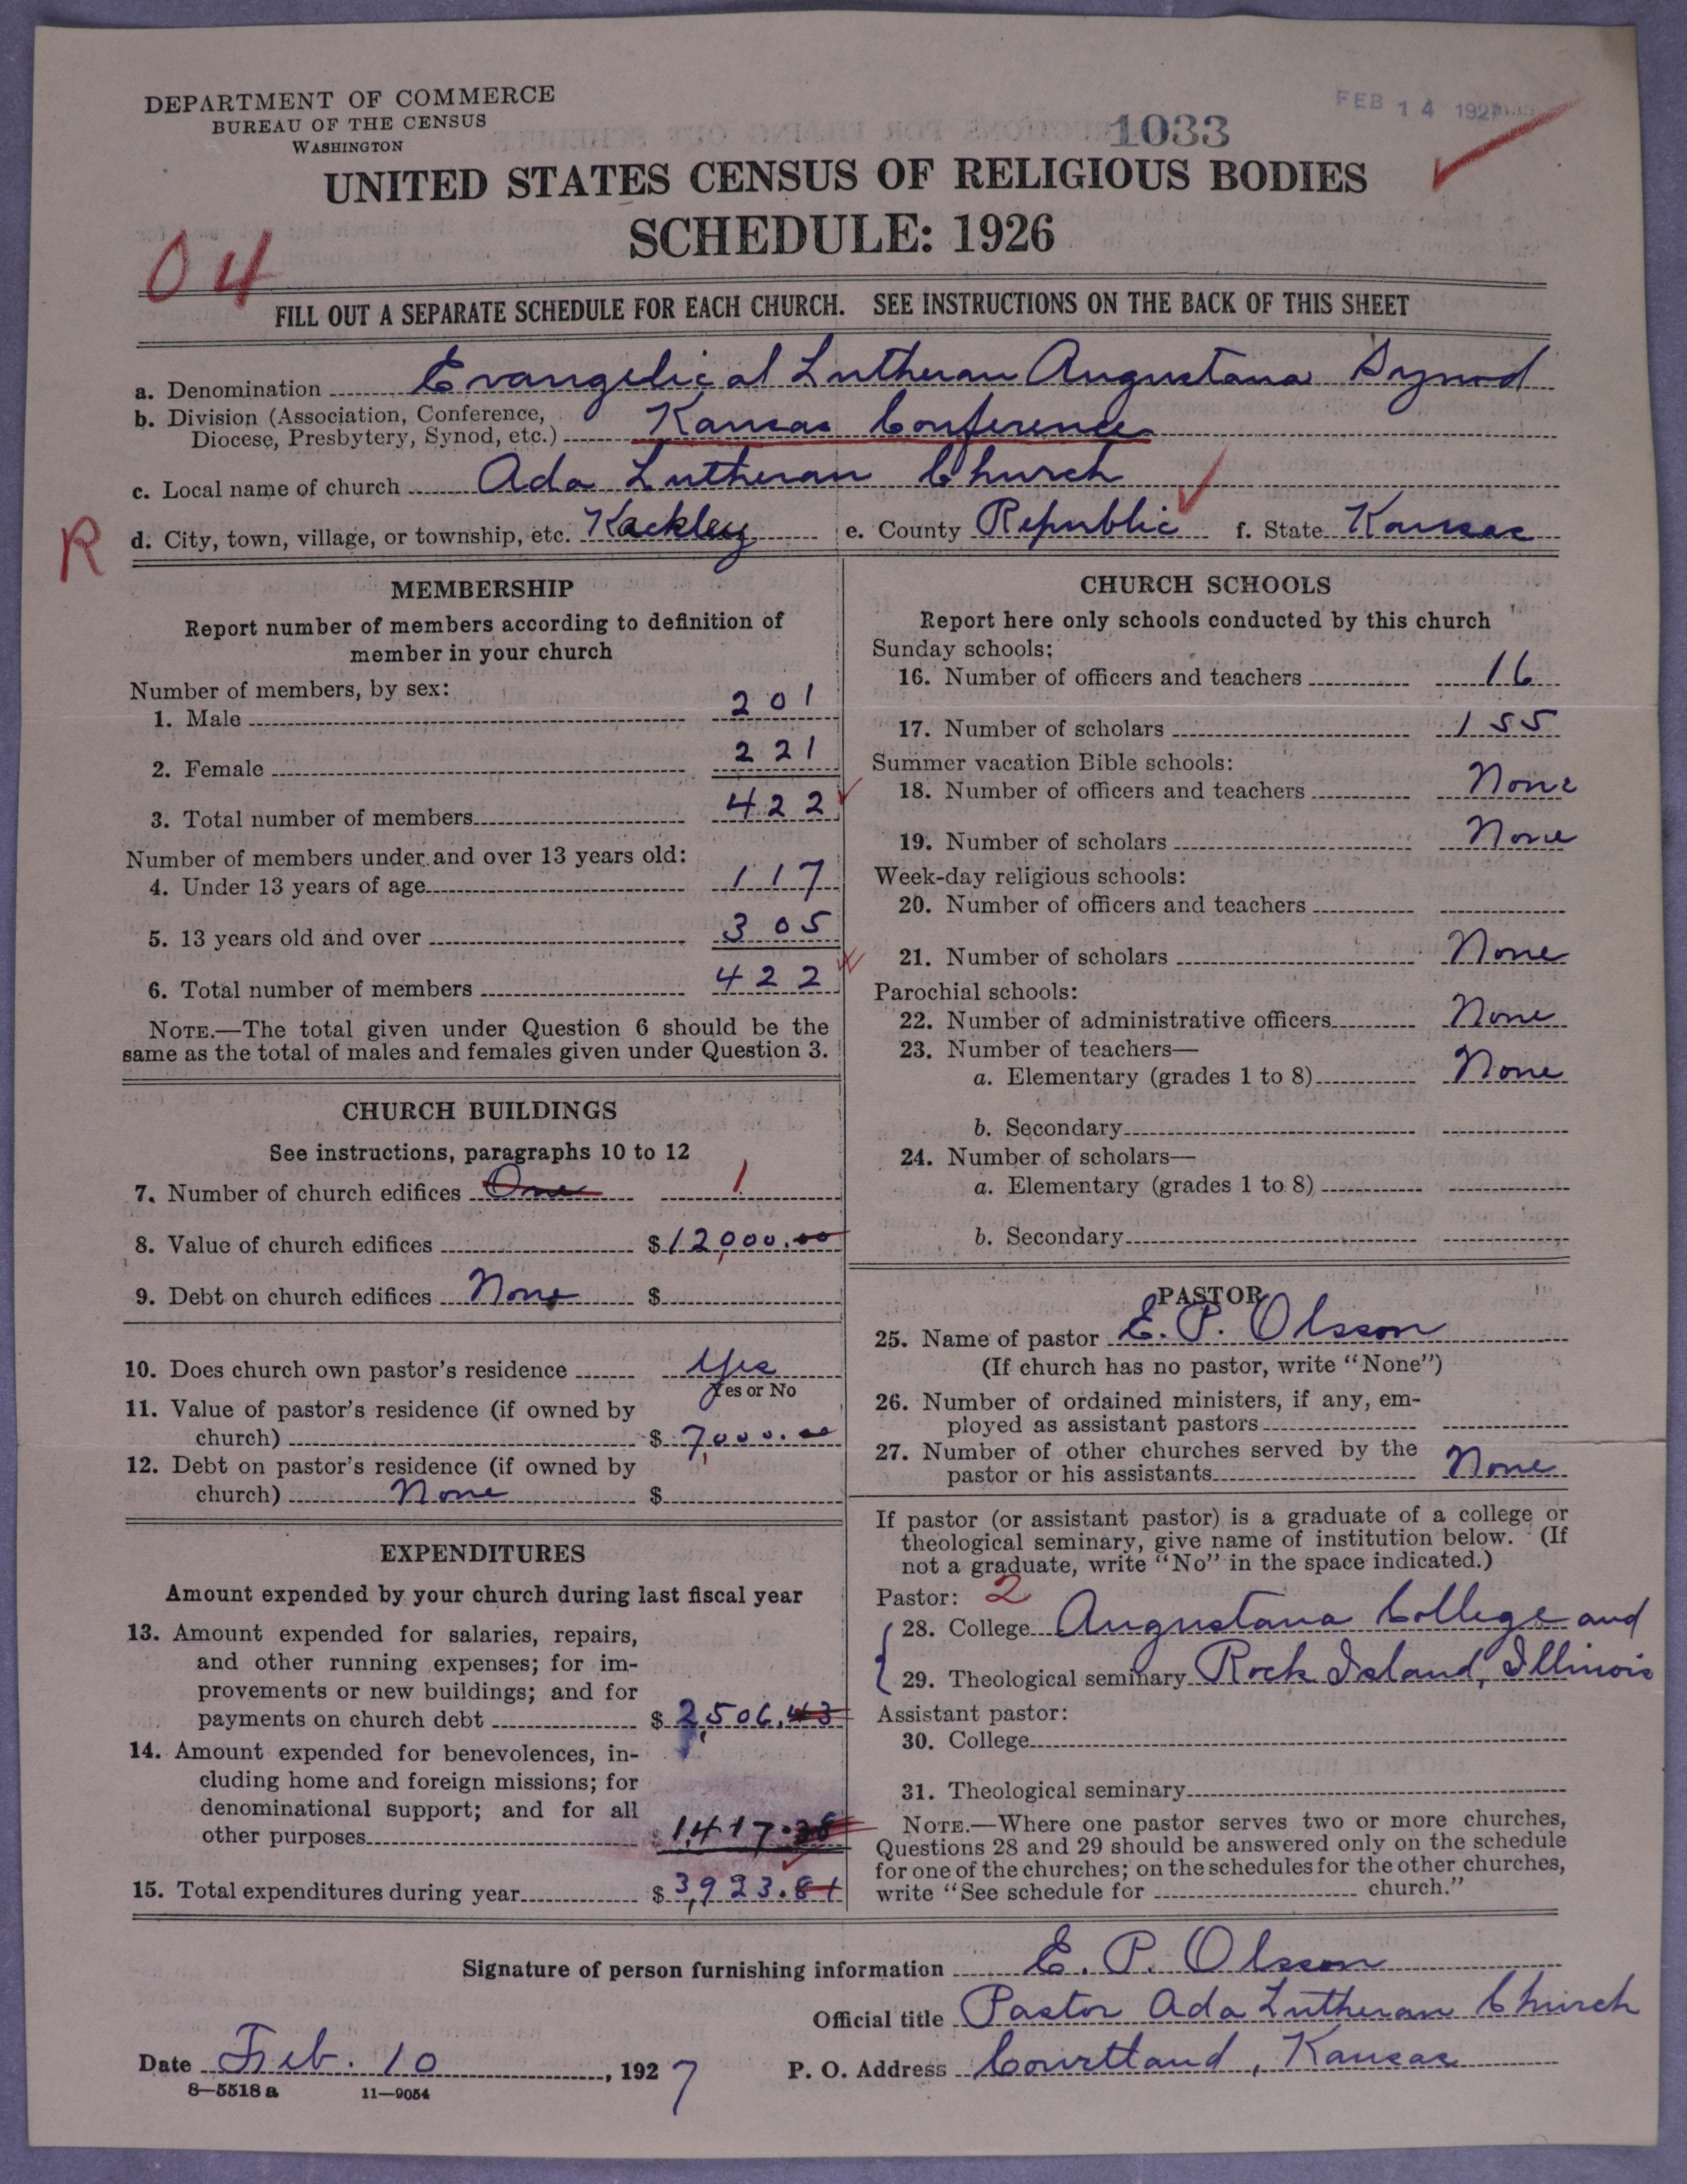 DEPARTMENT OF COMMERCE
BUREAU OF THE CENSUS
WASHINGTON
FEB 14 1927
1033
UNITED STATES CENSUS OF RELIGIOUS BODIES
SCHEDULE: 1926
04
FILL OUT A SEPARATE SCHEDULE FOR EACH CHURCH. SEE INSTRUCTIONS ON THE BACK OF THIS SHEET
a. Denomination Evangelical Lutheran Augustana Synod
b. Division (Association, Conference,
Diocese, Presbytery, Synod, etc.) Kansas Conference
c. Local name of church Ada Lutheran Church
R d. City, town, village, or township, etc. Kackley e. County Republic f. State Kansas
MEMBERSHIP
Report number of members according to definition of
member in your church
Number of members, by sex:
1. Male 201
2. Female 221
3. Total number of members 422
Number of members under and over 13 years old:
4. Under 13 years of age 117
5. 13 years old and over 305
6. Total number of members 422
NOTE.—The total given under Question 6 should be the
same as the total of males and females given under Question 3.
CHURCH BUILDINGS
See instructions, paragraphs 10 to 12
7. Number of church edifices One 1
8. Value of church edifices $12,000.00
9. Debt on church edifices None $
10. Does church own pastor's residence Yes
Yes or No
11. Value of pastor's residence (if owned by
church) $ 7,000.00
12. Debt on pastor's residence (if owned by
church) None $
EXPENDITURES
Amount expended by your church during last fiscal year
13. Amount expended for salaries, repairs,
and other running expenses; for im-
provements or new buildings; and for
payments on church debt $ 2,506.43
14. Amount expended for benevolences, in-
cluding home and foreign missions; for
denominational support; and for all
other purposes $ 1,417.38
15. Total expenditures during year $ 3,923.81
CHURCH SCHOOLS
Report here only schools conducted by this church
Sunday schools:
16. Number of officers and teachers 16
17. Number of scholars 155
Summer vacation Bible schools:
18. Number of officers and teachers None
19. Number of scholars None
Week-day religious schools:
20. Number of officers and teachers
21. Number of scholars None
Parochial schools:
22. Number of administrative officers None
23. Number of teachers—
a. Elementary (grades 1 to 8) None
b. Secondary
24. Number of scholars—
a. Elementary (grades 1 to 8)
b. Secondary
PASTOR
25. Name of pastor E. P. Olsson
(If church has no pastor, write "None")
26. Number of ordained ministers, if any, em-
ployed as assistant pastors
27. Number of other churches served by the
pastor or his assistants None
If pastor (or assistant pastor) is a graduate of a college or
theological seminary, give name of institution below. (If
not a graduate, write "No" in the space indicated.)
Pastor: 2
28. College Augustana College and
29. Theological seminary Rock Island, Illinois
Assistant pastor:
30. College
31. Theological seminary
NOTE.—Where one pastor serves two or more churches,
Questions 28 and 29 should be answered only on the schedule
for one of the churches; on the schedules for the other churches,
write "See schedule for church."
Signature of person furnishing information E. P. Olsson
Official title Pastor Ada Lutheran Church
Date Feb. 10, 1927 P. O. Address Courtland, Kansas
8—5518 a 11—9054